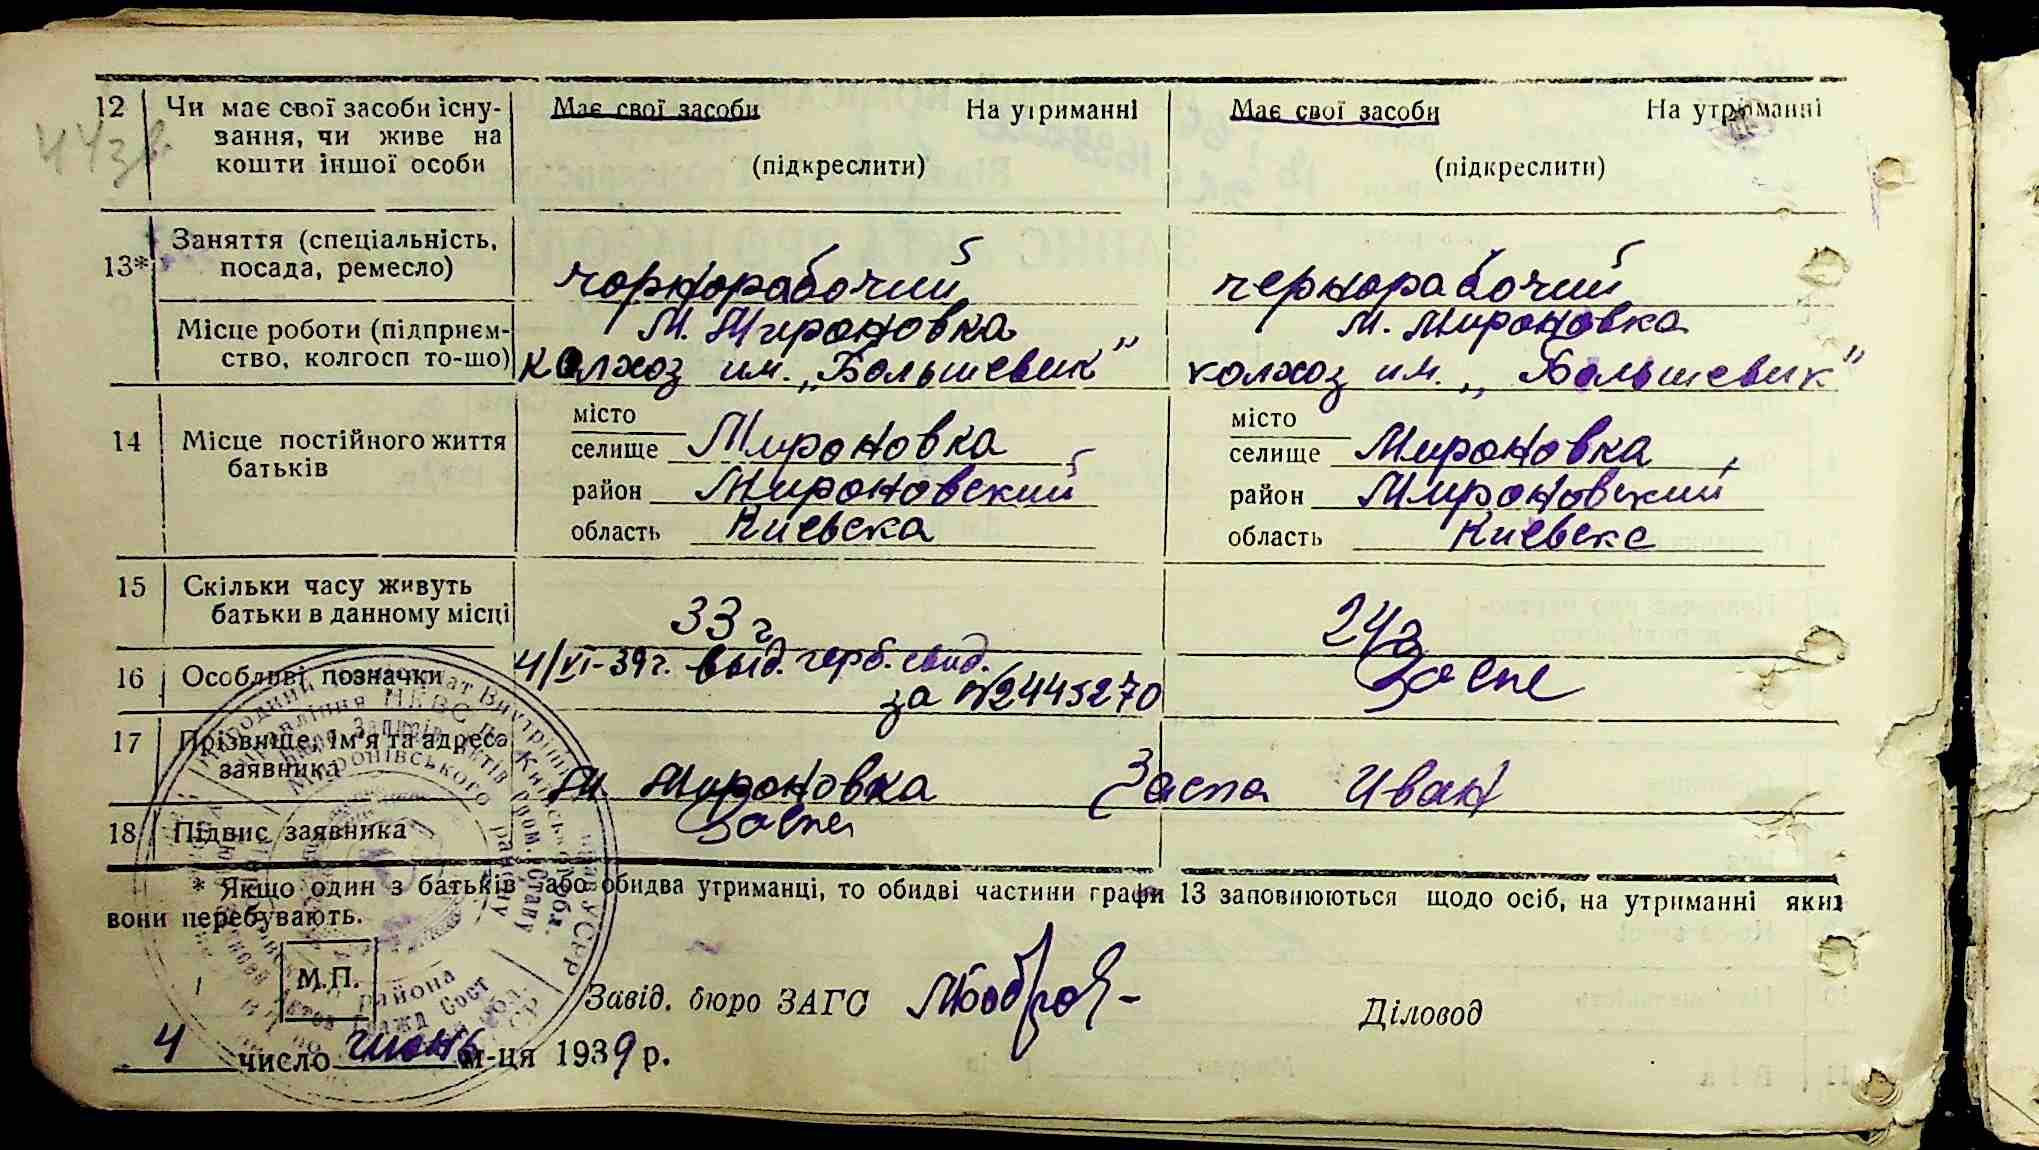 12 Чи має свої засоби існу- Має свої засоби На утриманні Має свої засоби На утриманні
вання, чи живе на
кошти іншої особи (підкреслити) (підкреслити)
Заняття (спеціальність,
13* посада, ремесло) чорнорабочий чернорабочий
Місце роботи (підприєм- М. Мироновка М. Мироновка
ство, колгосп то-що) колхоз им. „Большевик" колхоз им. „Большевик"
місто місто
14 Місце постійного життя селище Мироновка селище Мироновка
батьків
район Мироновский район Мироновский
область Киевска область Киевске
15 Скільки часу живуть
батьки в данному місці 33 г 24 г
16 Особливі позначки 4/VI-39 г. выд. герб. свид. Заспе
за №2445270
17 Прізвище, ім'я та адреса
заявника М. Мироновка Заспа Иван
18 Підпис заявника Заспа
* Якщо один з батьків або обидва утриманці, то обидві частини графи 13 заповнюються щодо осіб, на утриманні яких
вони перебувають.
М.П.
Завід. бюро ЗАГС Діловод
4 число июнь м-ця 1939 р.